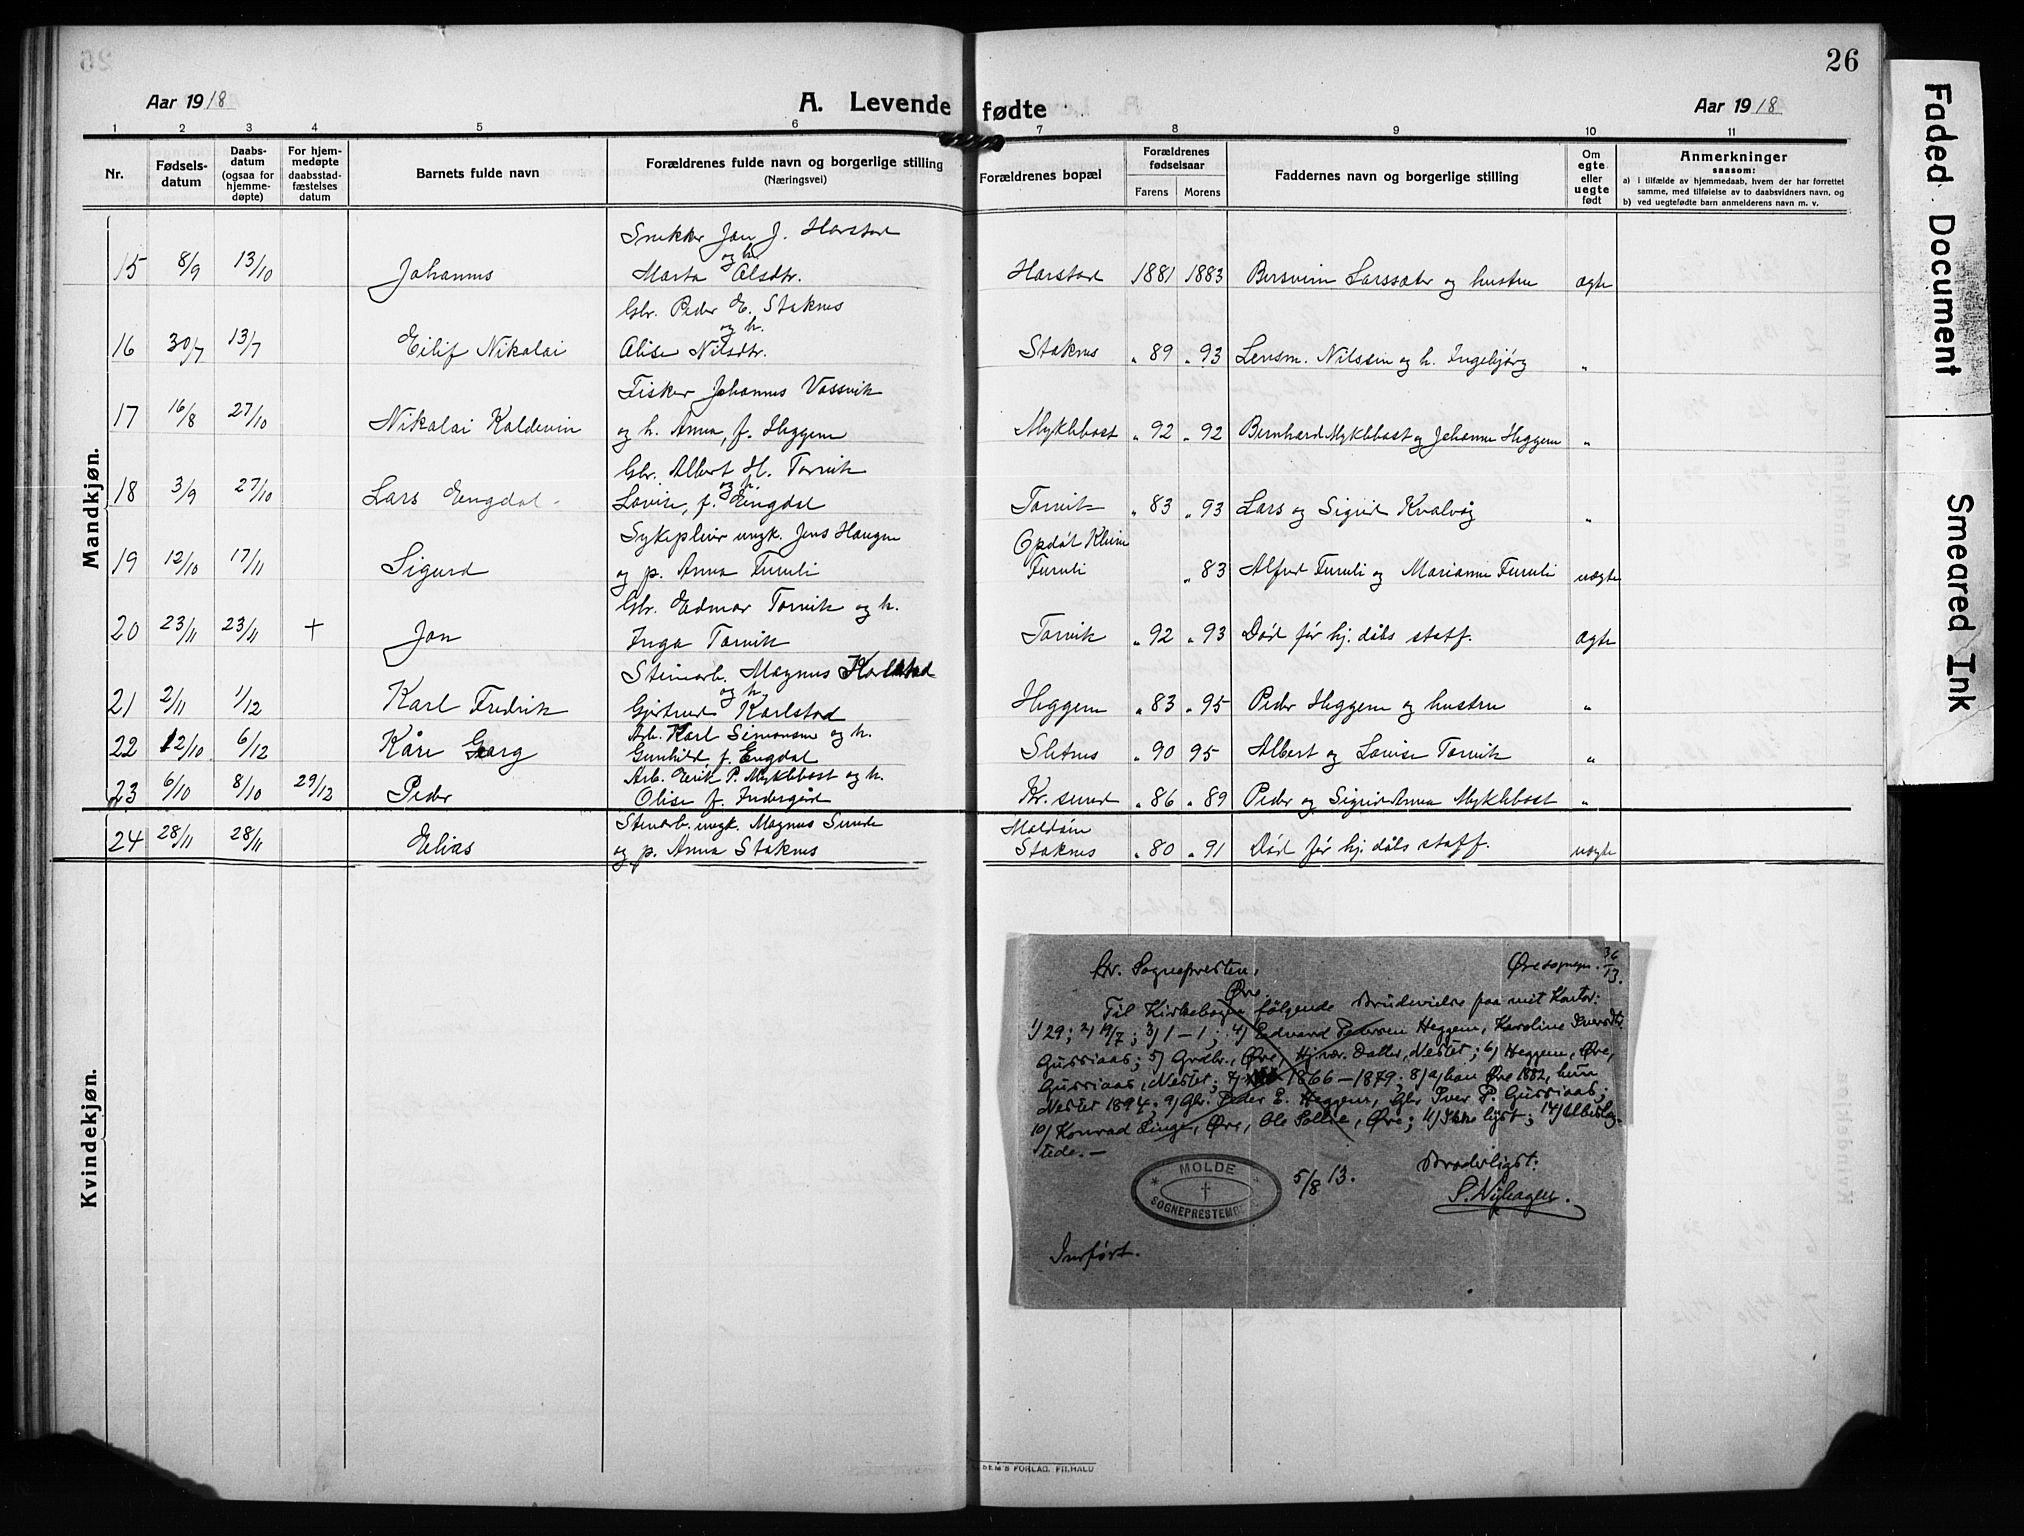 26
Aar 1918
A. Levende fødte
Aar 1918
1 2 3 4 5 6 7 8 9 10 11
Nr.
Fødsels-
datum
Daabs-
datum
(ogsaa for
hjemme-
døpte)
For hjem-
medøpte
daabsstad-
fæstelses
datum
Barnets fulde navn
Forældrenes fulde navn og borgerlige stilling
(Næringsvei)
Forældrenes bopæl
Forældrenes
fødselsaar
Farens Morens
Faddernes navn og borgerlige stilling
Om
egte
eller
uegte
født
Anmerkninger
saasom:
a) i tilfælde av hjemmedaab, hvem der har forrettet
samme, med tilføielse av to daabsvidners navn, og
b) ved uegtefødte barn anmelderens navn m. v.
Mandkjøn.
Snekker Jon J. Harstad
og h.
15 8/9 13/10 Johannes Marta Olsdtr. Harstad 1881 1883 Bersvein Larssæter og hustru ægte
Gbr. Peder E. Staknes
og h.
16 30/7 13/7 Eilif Nikolai Olise Nilsdtr. Staknes " 89 " 93 Lensm. Nilssen og h. Ingebjørg "
Fisker Johannes Vassvik
17 16/8 27/10 Nikolai Kaldevin og h. Anna, f. Heggem Myklebost " 92 " 92 Bernhard Myklebost og Johanna Heggem "
Gbr. Albert H. Torvik
og h.
18 3/9 27/10 Lars Engdal Lovise, f. Engdal Torvik " 83 " 93 Lars og Sigrid Kvalvåg "
Sykepleier ungk. Jens Haugen Opdøl Kleive
19 12/10 17/11 Sigurd og p. Anna Furuli Furuli " 83 Alfred Furuli og Marianne Furuli uægte
Gbr. Edmar Torvik og h.
20 23/11 23/11 + Jon Inga Torvik Torvik " 92 " 93 Død før hj. dåbs staff. ægte
Stenarb. Magnus Karlstad
og h.
21 2/11 1/12 Karl Fredrik Gjertrud Karlstad Heggem " 83 " 95 Peder Heggem og hustru "
Arb. Karl Simonsen og h.
22 12/10 6/12 Kåre Georg Gunhild, f. Engdal Sletnes " 90 95 Albert og Lovise Torvik "
Arb. Erik P. Myklebost og h.
23 6/10 8/10 29/12 Peder Olise f. Indergård Kr. sund " 86 " 89 Peder og Sigrid Anna Myklebost "
Stenarb. ungk. Magnus Sunde
24 28/11 28/11 Elias og p. Anna Staknes Staknes " 80 " 91 Død før hj. dåbs staff. uægte
Kvindekjøn.
Hr. Sognepresten, Øre sognepr. 36/13.
Øre.
Til Kirkebogen følgende Brudevielse paa mit Kontor:
1/29; 2/ 19/7; 3/ 1 – 1; 4/ Edvard Pedersen Heggem, Karoline Iversdtr.
Gussiaas; 5/ Grdbr., Øre, Hj.vær. Datter, Nesset; 6/ Heggem, Øre,
Gussiaas, Nesset; 7/ 1866 – 1879; 8/ a/ han Øre 1882, hun
Nesset 1894; 9/ Gbr. Peder E. Heggem, Gbr Iver P. Gussiaas;
10/ Konrad Linge, Øre, Ole Solli, Øre; 11/ lyst; 14/
tede. –
MOLDE
SOGNEPRESTEMBE
5/8 13.
Broderligst:
S. Nyhagen.
Indført.
FORLAG, FR.HALD
Faded Document
Smeared Ink